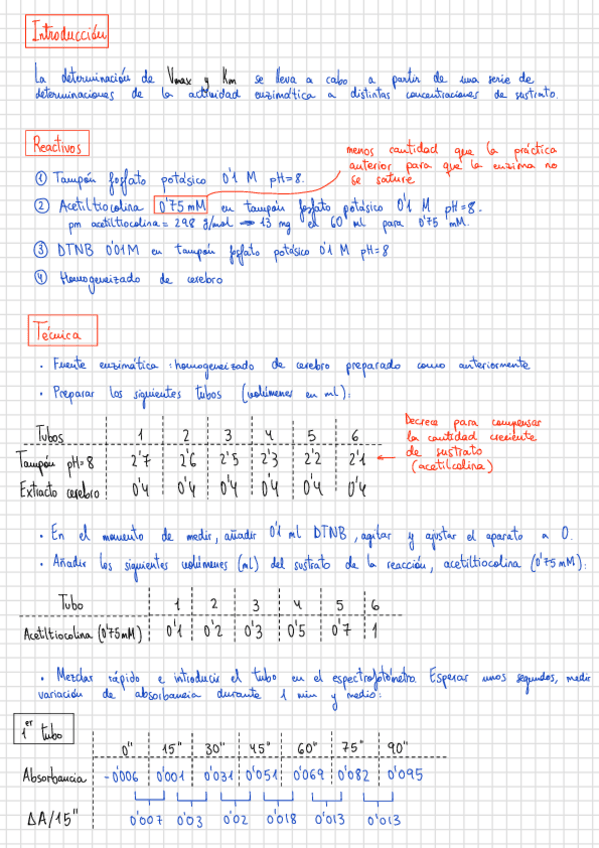 Introducción
La determinación de Vmax y Km se lleva a cabo a partir de una serie de
determinaciones de la actividad enzimática a distintas concentraciones de sustrato.
Reactivos
menos cantidad que la práctica
anterior para que la enzima no
se sature
① Tampón fosfato potásico 0'1 M pH=8.
② Acetiltiocolina 0'75 mM en tampón fosfato potásico 0'1 M pH=8.
pm acetiltiocolina = 298 g/mol → 13 mg en 60 ml para 0'75 mM.
③ DTNB 0'01M en tampón fosfato potásico 0'1 M pH=8
④ Homogeneizado de cerebro
Técnica
· Fuente enzimática: homogeneizado de cerebro preparado como anteriormente
· Preparar los siguientes tubos (volúmenes en ml):
Tubos 1 2 3 4 5 6
Tampón pH=8 2'7 2'6 2'5 2'3 2'2 2'1
Extracto cerebro 0'4 0'4 0'4 0'4 0'4 0'4
Decrece para compensar
la cantidad creciente
de sustrato
(acetilcolina)
· En el momento de medir, añadir 0'1 ml DTNB, agitar y ajustar el aparato a 0.
· Añadir los siguientes volúmenes (ml) del sustrato de la reacción, acetiltiocolina (0'75 mM):
Tubo 1 2 3 4 5 6
Acetiltiocolina (0'75mM) 0'1 0'2 0'3 0'5 0'7 1
· Mezclar rápido e introducir el tubo en el espectrofotómetro. Esperar unos segundos, medir
variación de absorbancia durante 1 min y medio:
1er tubo
0" 15" 30" 45" 60" 75" 90"
Absorbancia -0'006 0'001 0'031 0'051 0'069 0'082 0'095
ΔA/15" 0'007 0'03 0'02 0'018 0'013 0'013